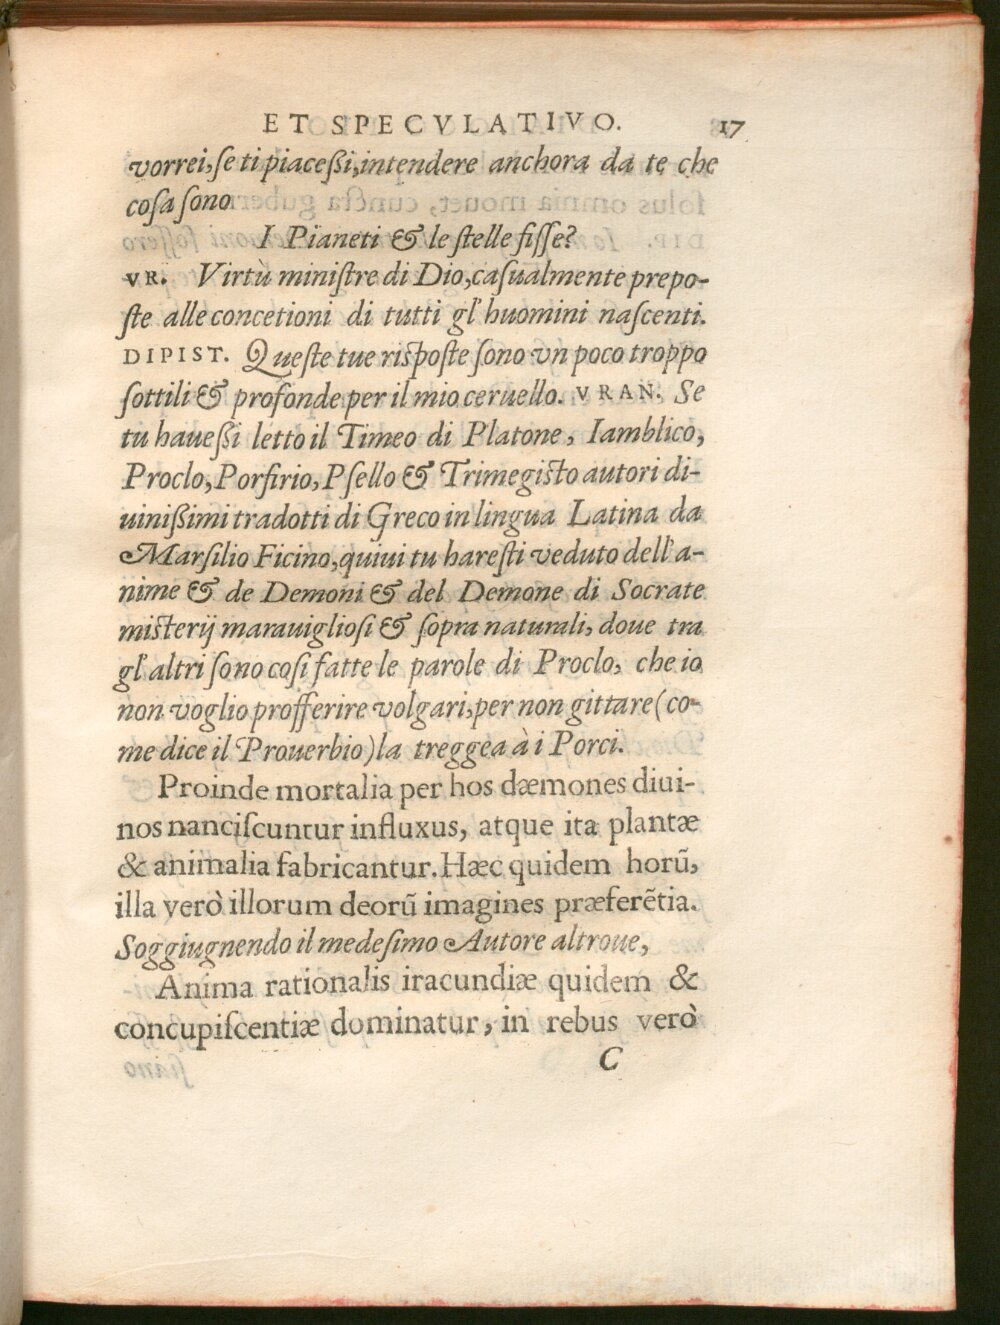 ET SPECVLATIVO. 17
vorrei, se ti piaceßi, intendere anchora da te che
cosa sono
I Pianeti & le stelle fisse?
VR. Virtù ministre di Dio, casualmente prepo-
ste alle concetioni di tutti gl'huomini nascenti.
DIPIST. Queste tue risposte sono vn poco troppo
sottili & profonde per il mio ceruello. VRAN. Se
tu haueßi letto il Timeo di Platone, Iamblico,
Proclo, Porfirio, Psello & Trimegisto autori di-
uinißimi tradotti di Greco in lingua Latina da
Marsilio Ficino, quiui tu haresti veduto dell'a-
nime & de Demoni & del Demone di Socrate
misterij marauigliosi & sopra naturali, doue tra
gl'altri sono cosi fatte le parole di Proclo, che io
non voglio profferire volgari, per non gittare (co-
me dice il Prouerbio) la treggea à i Porci.
Proinde mortalia per hos dæmones diui-
nos nanciscuntur influxus, atque ita plantæ
& animalia fabricantur. Hæc quidem horũ,
illa verò illorum deorũ imagines præferẽtia.
Soggiugnendo il medesimo Autore altroue,
Anima rationalis iracundiæ quidem &
concupiscentiæ dominatur, in rebus verò
C